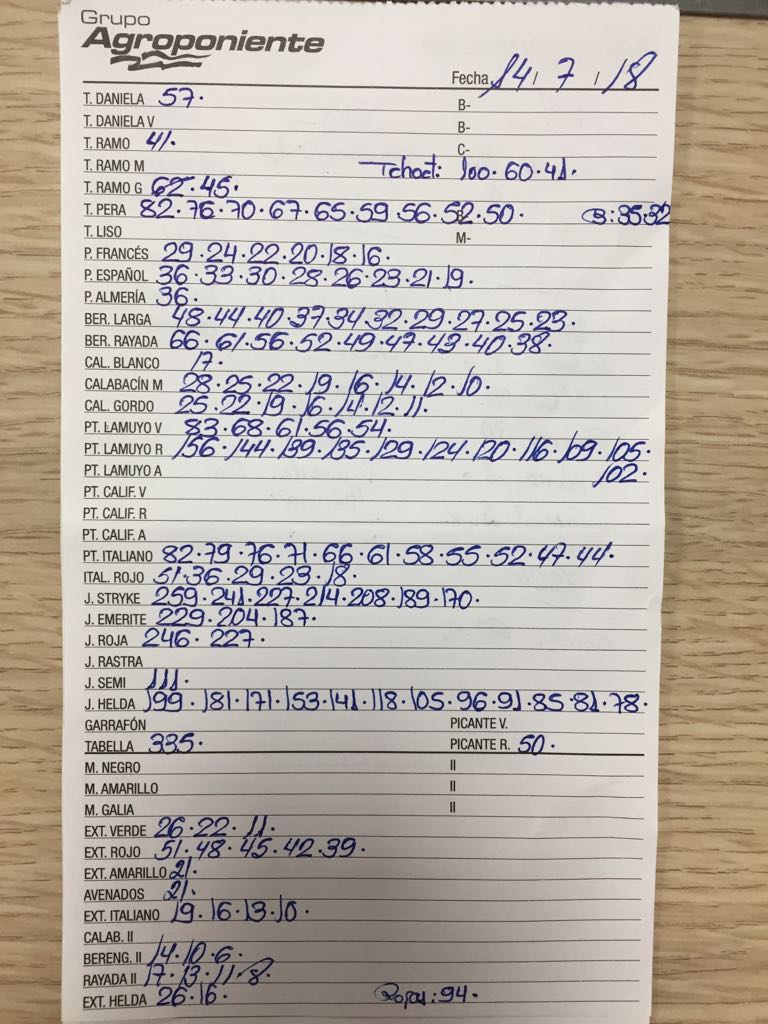 Grupo
Agroponiente
Fecha 14 / 7 / 18
T. DANIELA 57· B-
T. DANIELA V B-
T. RAMO 41· C-
T. RAMO M Tchoct: 100·60·41·
T. RAMO G 62·45·
T. PERA 82·76·70·67·65·59·56·52·50· B:35·32
T. LISO M-
P. FRANCÉS 29·24·22·20·18·16·
P. ESPAÑOL 36·33·30·28·26·23·21·19·
P. ALMERÍA 36·
BER. LARGA 48·44·40·37·34·32·29·27·25·23·
BER. RAYADA 66·61·56·52·49·47·43·40·38·
CAL. BLANCO 17·
CALABACÍN M 28·25·22·19·16·14·12·10·
CAL. GORDO 25·22·19·16·14·12·11·
PT. LAMUYO V 83·68·61·56·54·
PT. LAMUYO R 156·144·139·135·129·124·120·116·109·105·
PT. LAMUYO A 102·
PT. CALIF. V
PT. CALIF. R
PT. CALIF. A
PT. ITALIANO 82·79·76·71·66·61·58·55·52·47·44·
ITAL. ROJO 51·36·29·23·18·
J. STRYKE 259·241·227·214·208·189·170·
J. EMERITE 229·204·187·
J. ROJA 246·227·
J. RASTRA
J. SEMI 111·
J. HELDA 199·181·171·153·141·118·105·96·91·85·81·78·
GARRAFÓN PICANTE V.
TABELLA 335· PICANTE R. 50·
M. NEGRO II
M. AMARILLO II
M. GALIA II
EXT. VERDE 26·22·11·
EXT. ROJO 51·48·45·42·39·
EXT. AMARILLO 21·
AVENADOS 21·
EXT. ITALIANO 19·16·13·10·
CALAB. II
BERENG. II 14·10·6·
RAYADA II 17·13·11·8·
EXT. HELDA 26·16· Rojos:94·